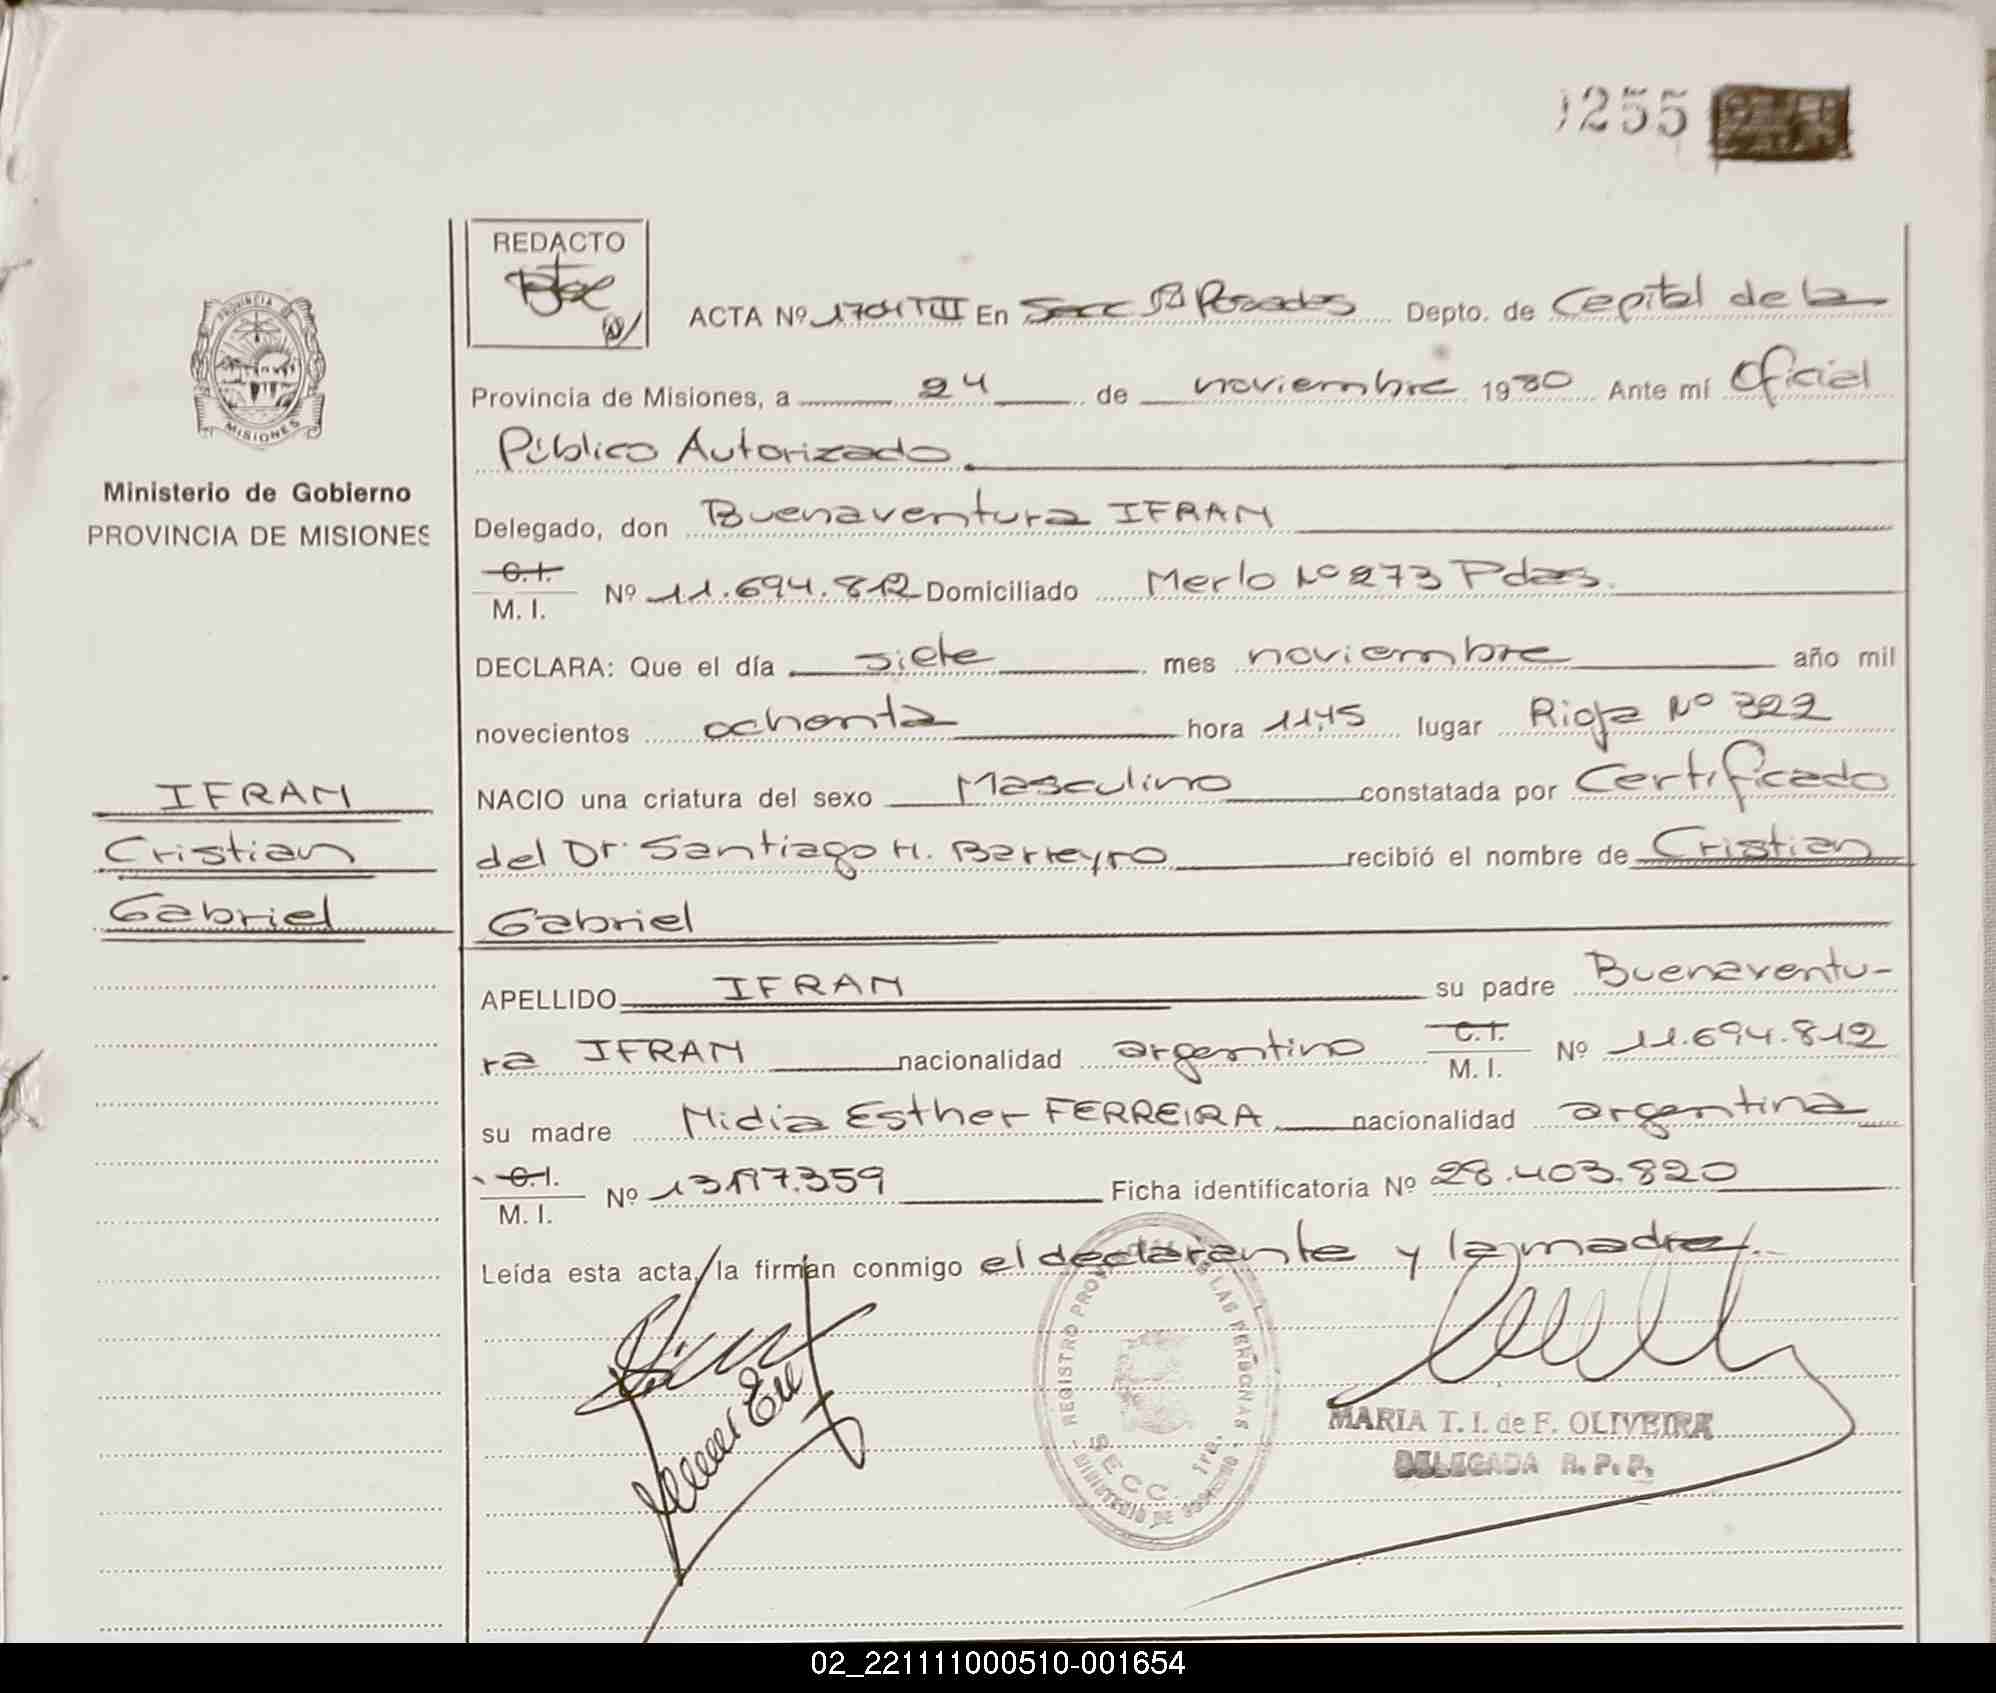 255
REDACTO
ACTA Nº 1701 TIII En Secc 1ª Posadas Depto. de Capital de la
PROVINCIA
MISIONES
Provincia de Misiones, a 24 de noviembre 1980 Ante mí Oficial
Público Autorizado
Ministerio de Gobierno
PROVINCIA DE MISIONES
Delegado, don Buenaventura IFRAN
C.I.
M. I. Nº 11.694.812 Domiciliado Merlo Nº 273 Pdas.
DECLARA: Que el día siete mes noviembre año mil
novecientos ochenta hora 11,45 lugar Rioja Nº 322
IFRAN
Cristian
Gabriel
NACIO una criatura del sexo Masculino constatada por Certificado
del Dr. Santiago H. Barreyro recibió el nombre de Cristian
Gabriel
APELLIDO IFRAN su padre Buenaventu-
ra IFRAN nacionalidad argentino C.I. M. I. Nº 11.694.812
su madre Nidia Esther FERREIRA nacionalidad argentina
C.I.
M. I. Nº 13.197.359 Ficha identificatoria Nº 28.403.820
Leída esta acta, la firman conmigo el declarante y la madre.
REGISTRO PROV LAS PERSONAS
SECC. 1ra.
MINISTERIO DE GOBIERNO
MARIA T. I. de F. OLIVEIRA
DELEGADA R. P. P.
02_221111000510-001654